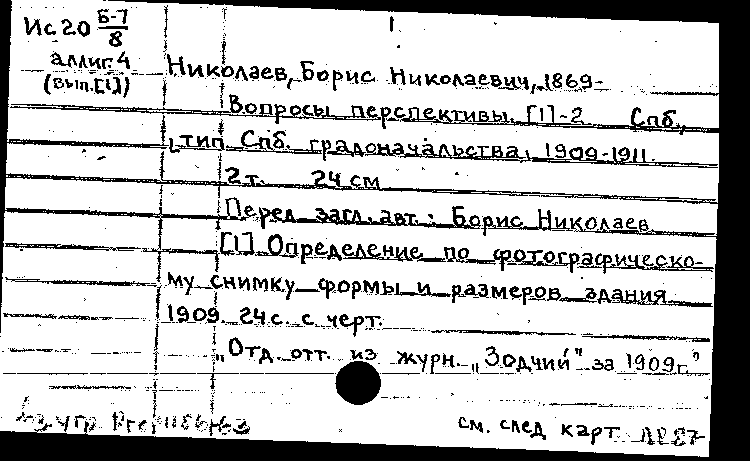 Ис 20 Б-7/8
аллиг. 4
(вып.[1])
Николаев, Борис Николаевич, 1869-
Вопросы перспективы. [1]-2 Спб.,
тип. Спб. градоначальства, 1909-1911.
2 т. 24 см
Перед загл. авт.: Борис Николаев
[1] Определение по фотографическо-
му снимку формы и размеров здания
1909. 24 с. с черт.
"Отд. отт. из журн. „Зодчий" за 1909г."
см. след карт.